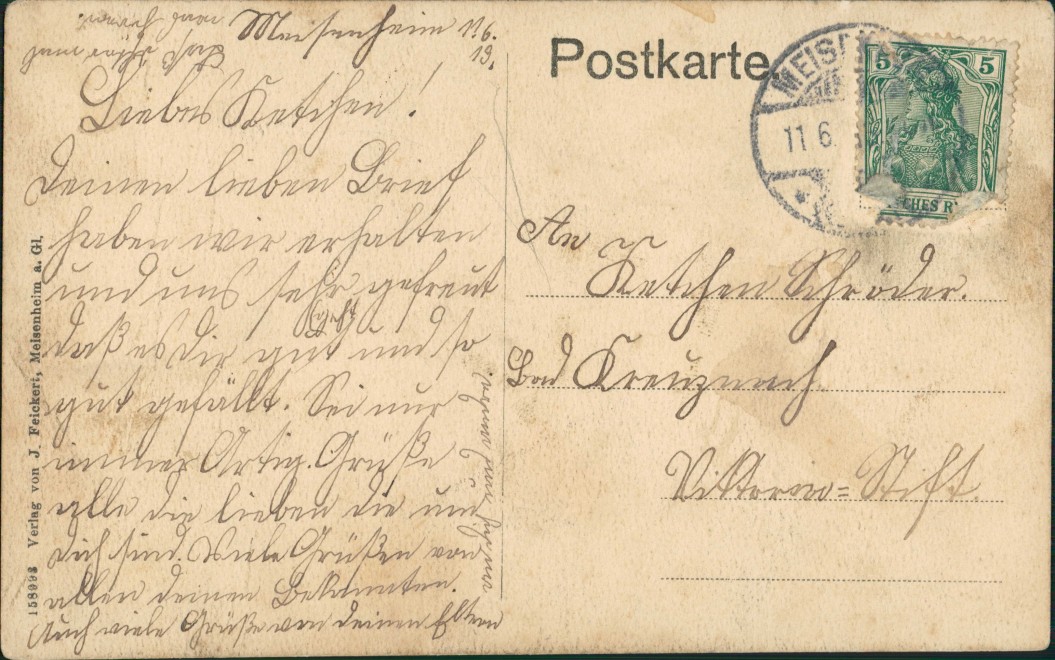 Meisenheim 11.6.
13.
Liebes Ketchen!
Deinen lieben Brief
haben wir erhalten
und uns sehr gefreut
daß es Dir gut geht und so
gut gefällt. Sei nur
immer Artig. Grüße
alle die lieben die um
dich sind. Viele Grüßen von
allen deinen Bekannten.
Auch viele Grüße von deinen Eltern
158993 Verlag von J. Feickert, Meisenheim a. Gl.
Postkarte.
MEISE
11 6.
5 5
CHES R
An
Ketchen Schröder.
Bad Kreuznach
Viktoria=Stift.